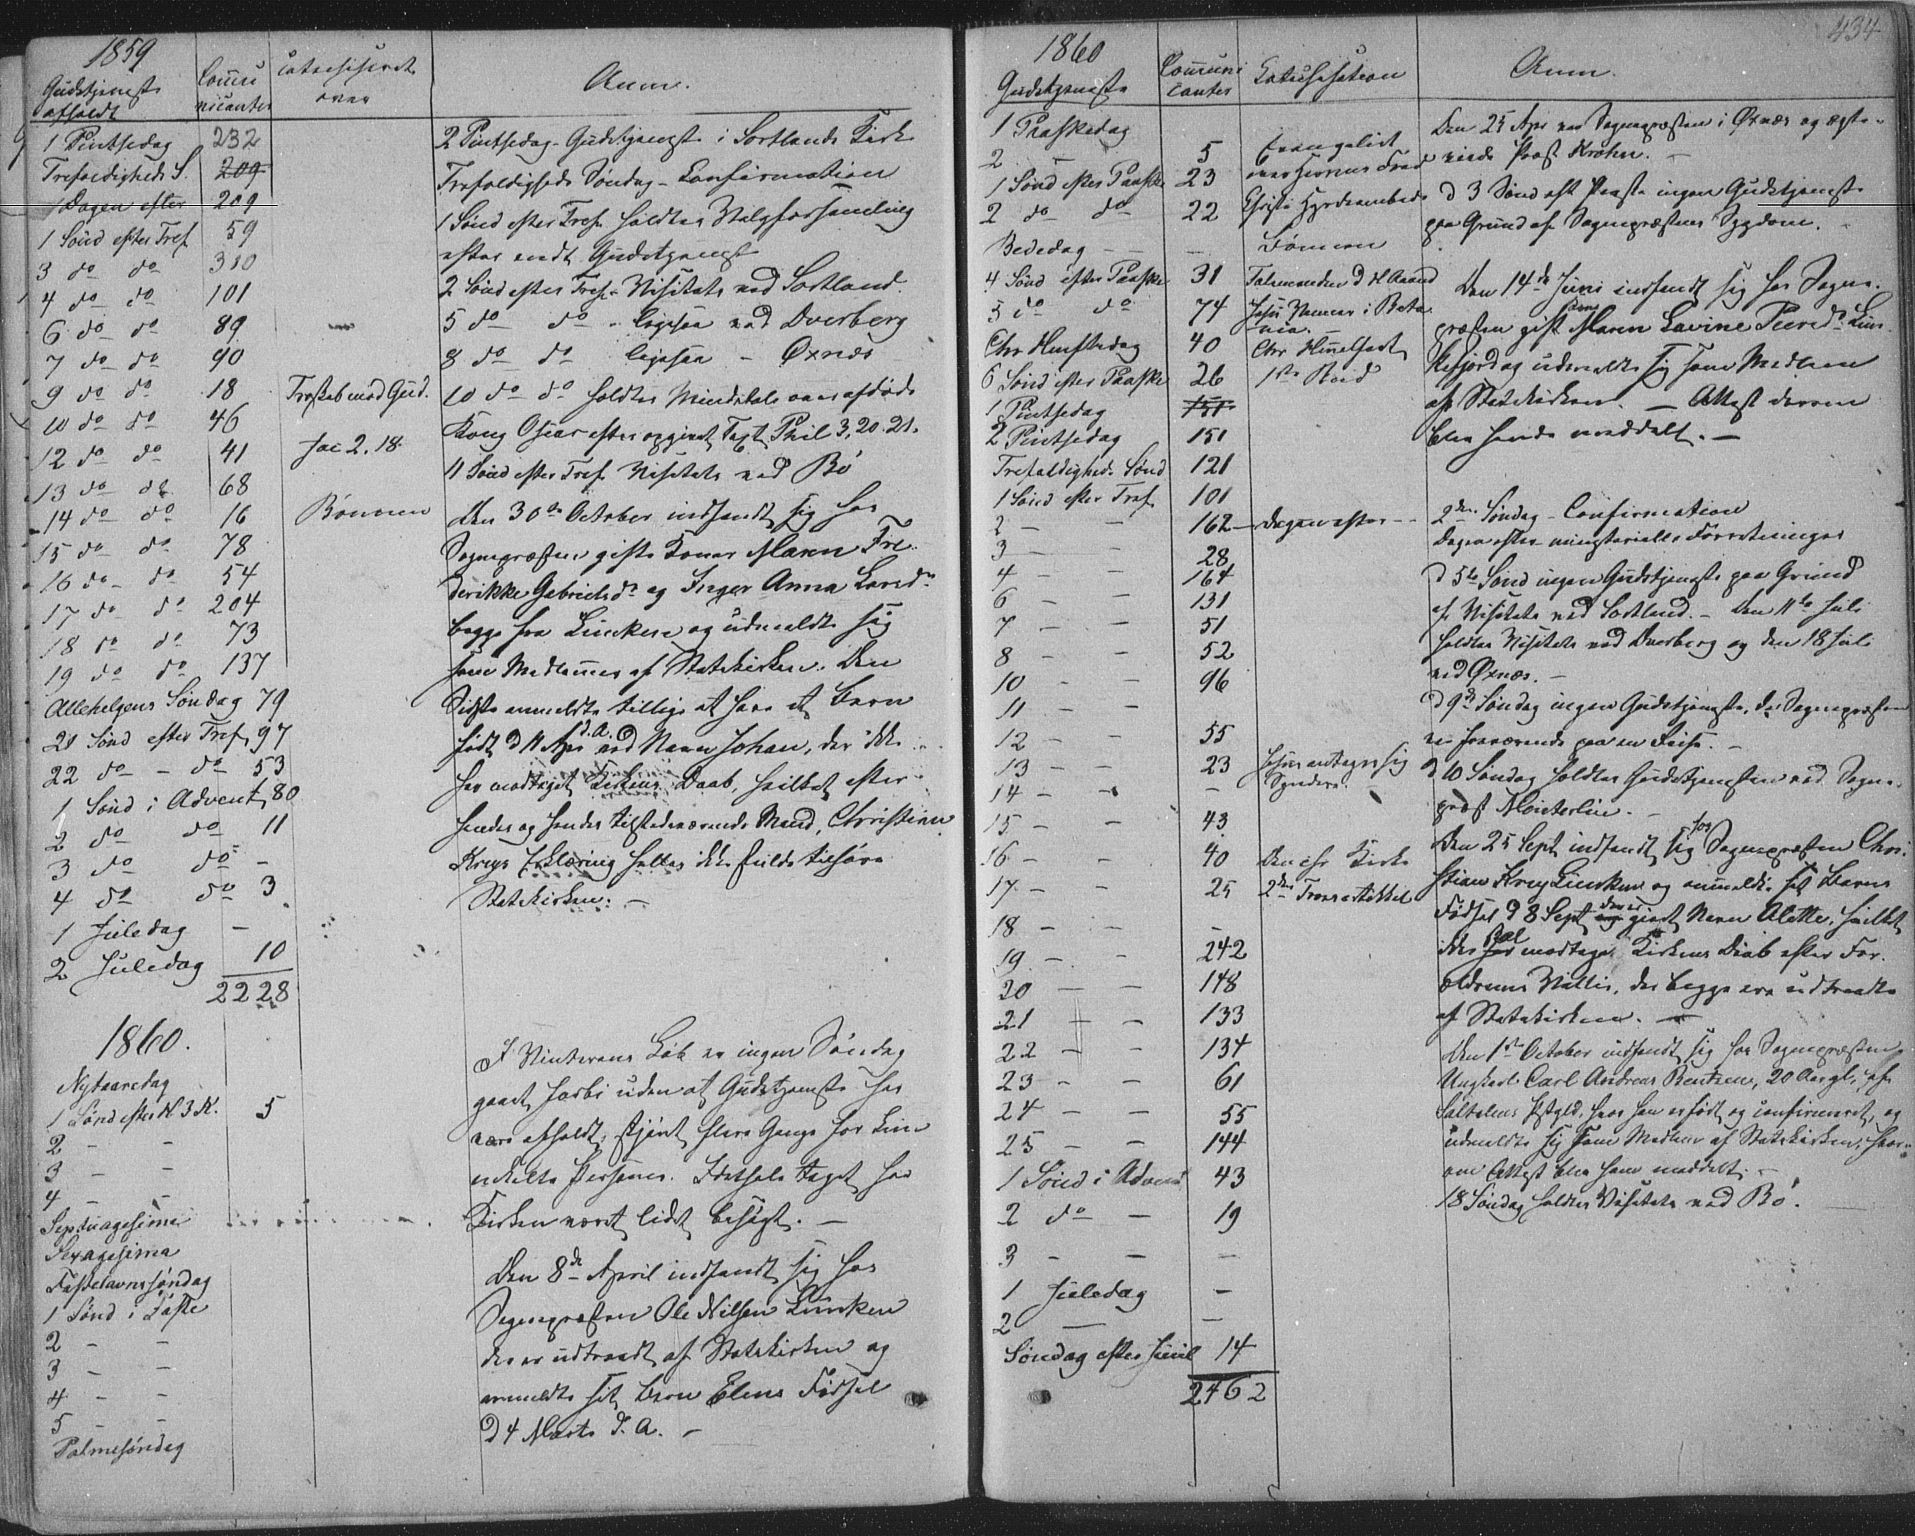 1859
Gudstjeneste afholdt
Communicanter
Catechiseret over
Anm.
1 Pintsedag 232
Trefoldigheds S. 209
Dagen efter 209
1 Sönd efter Tref 59
3 do do 310
4 do do 101
6 do do 89
7 do do 90
9 do do 18 Troskab mod Gud.
10 do do 46
12 do do 41 Jac 2. 18
13 do do 68
14 do do 16 Bönnen
15 do do 78
16 do do 54
17 do do 204
18 do do 73
19 do do 137
Allehelgens Söndag 79
21 Sönd efter Tref. 97
22 do - do 53
1 Sönd i Advent 80
2 do do 11
3 do do -
4 do do 3
1 Juledag -
2 Juledag 10
2228
1860.
Nytaarsdag
1 Sönd efter H. 3 K. 5
2 - -
3 - -
4 - -
Septuagesima
Sexagesima
Fastelavnssöndag
1 Sönd i Faste
2 - -
3 - -
4 - -
5 - -
Palmesöndag
2 Pintsedag - Gudstjeneste i Sortlands Kirke
Trefoldigheds Söndag - Confirmation
1 Sönd efter Tref. holdtes Valgforsamling
efter endt Gudstjeneste
2 Sönd efter Tref. Visitats ved Sortland.
5 do do ligesaa ved Dverberg
8 do do ligesaa - Öxnæs
10 do do holdtes Mindetale over afdöde
Kong Oscar efter opgivet Text Phil 3, 20. 21.
11 Sönd efter Tref Visitats ved Bö
Den 30te October indfandt sig hos
Sognepræsten gifte Koner Maren Fre-
derikke Gabrielsdr og Inger Anna Larsdr
begge fra Dincken og udmeldte sig
som Medlemmer af Statskirken. Den
Sidste anmeldte tillige at have et Barn
födt d 11 Apr d. A. ved Navn Johan, der ikke
har modtaget Kirkens Daab, hvilket efter
hendes og hendes tilstedeværende Mand, Christian
Kreys Erklæring heller ikke skulde tilhöre
Statskirken. -
I Vinterens Löb er ingen Söndag
gaaet forbi uden at Gudstjeneste har
være afholdt, skjönt flere Gange for kun
enkelte Personer. Idethele taget har
Kirken været lidt besögt. -
Den 8de April indfandt sig hos
Sognepræsten Ole Nilsen
der er udtraadt af Statskirken og
anmeldte sit Barn Elens Födsel
d 4 Marts d. A. -
434
1860
Gudstjeneste
Communicanter
Catechisation
Anm.
1 Paaskedag
2 - 5
1 Sönd efter Paaske 23
2 do do 22 Christi Hyrdeembede
Bededag - -
4 Sönd efter Paaske 31 Talsmanden d H Aand
5 do do 74 Jesu Navn
Chr Himfhrtsdag 40 Chr Himelfart
6 Sönd efter Paaske 26 1ste Bud
1 Pintsedag 151
2 Pintsedag 151
Trefoldigheds Sönd 121
1 Sönd efter Tref. 101
2 - - 162 - Dagen efter - -
3 - - 28
4 - - 164
6 - - 131
7 - - 51
8 - - 52
10 - - 96
11 - -
12 - - 55
13 - - 23 Jesus antager sig Syndere.
14 - - -
15 - - 43
16 - - 40 Den chr Kirke
17 - - 25 2den Troesartikkel
18 - - -
19 - - 242
20 - - 148
21 - - 133
22 - - 134
23 - - 61
24 - - 55
25 - - 144
1 Sönd i Advent 43
2 do - 19
3 - - -
1 Juledag -
2 - -
Söndag efter Juul 14
2462
Den 25 Apr var Sognepræsten i Öxnæs og ægte-
viede Prost Krohn. -
d 3 Sönd eft Paaske ingen Gudstjeneste
paa Grund af Sognepræstens Sygdom. -
Den 14de Juni indfandt sig hos Sogne-
præsten gift Kone Maren Lavine Peersdr
og udmeldte sig som Medlem
af Statskirken. - Attest derom
blev hende meddelt. -
2den Söndag - Confirmation
Dagen efter ministerielle Forretninger
d 5te Sönd ingen Gudstjeneste paa Grund
af Visitats ved Sortland. - Den 11te Juli
holdtes Visitats ved Dverberg og den 18 Juli
ved Öxnæs. -
d 9de Söndag ingen Gudstjeneste, da Sognepræsten
var fraværende paa en Reise. -
d 10 Söndag holdtes Gudstjenesten ved Sogne-
præst -
Den 25 Sept. indfandt sig hos Sognepræsten Chri-
stian Krey Dincken og anmeldte sit Barns
Födsel d 8 Sept der er givet Navn Alette, hvilket
ikke skal modtage Kirkens Daab efter For-
ældrenes Villie, der begge ere udtraadte
af Statskirken. -
Den 1ste October indfandt sig hos Sognepræsten
Ungkarl Carl Andreas Bentzen, 20 Aar gl, af
Saltdalens Pstgld, hvor han er födt og confirmeret, og
udmeldte sig som Medlem af Statskirken, hvor-
om Attest blev ham meddelt. -
18 Söndag holdtes Visitats ved Bö.